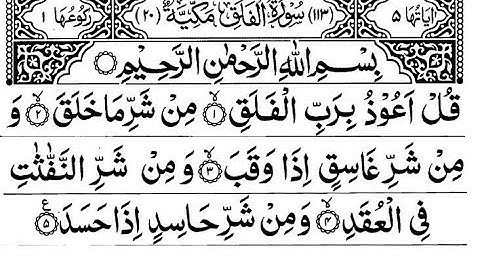 اٰیَاتُهَا ۵ (۱۱۳) سُوْرَةُ الْفَلَقِ مَکِّیَّةٌ (۲۰) رُکُوْعُهَا ۱
بِسْمِ اللّٰهِ الرَّحْمٰنِ الرَّحِیْمِ ۝
قُلْ اَعُوْذُ بِرَبِّ الْفَلَقِۙ‏﴿۱﴾ مِنْ شَرِّ مَا خَلَقَۙ‏﴿۲﴾ وَ
مِنْ شَرِّ غَاسِقٍ اِذَا وَقَبَۙ‏﴿۳﴾ وَ مِنْ شَرِّ النَّفّٰثٰتِ
فِی الْعُقَدِۙ‏﴿۴﴾ وَ مِنْ شَرِّ حَاسِدٍ اِذَا حَسَدَ‏﴿۵﴾ ع